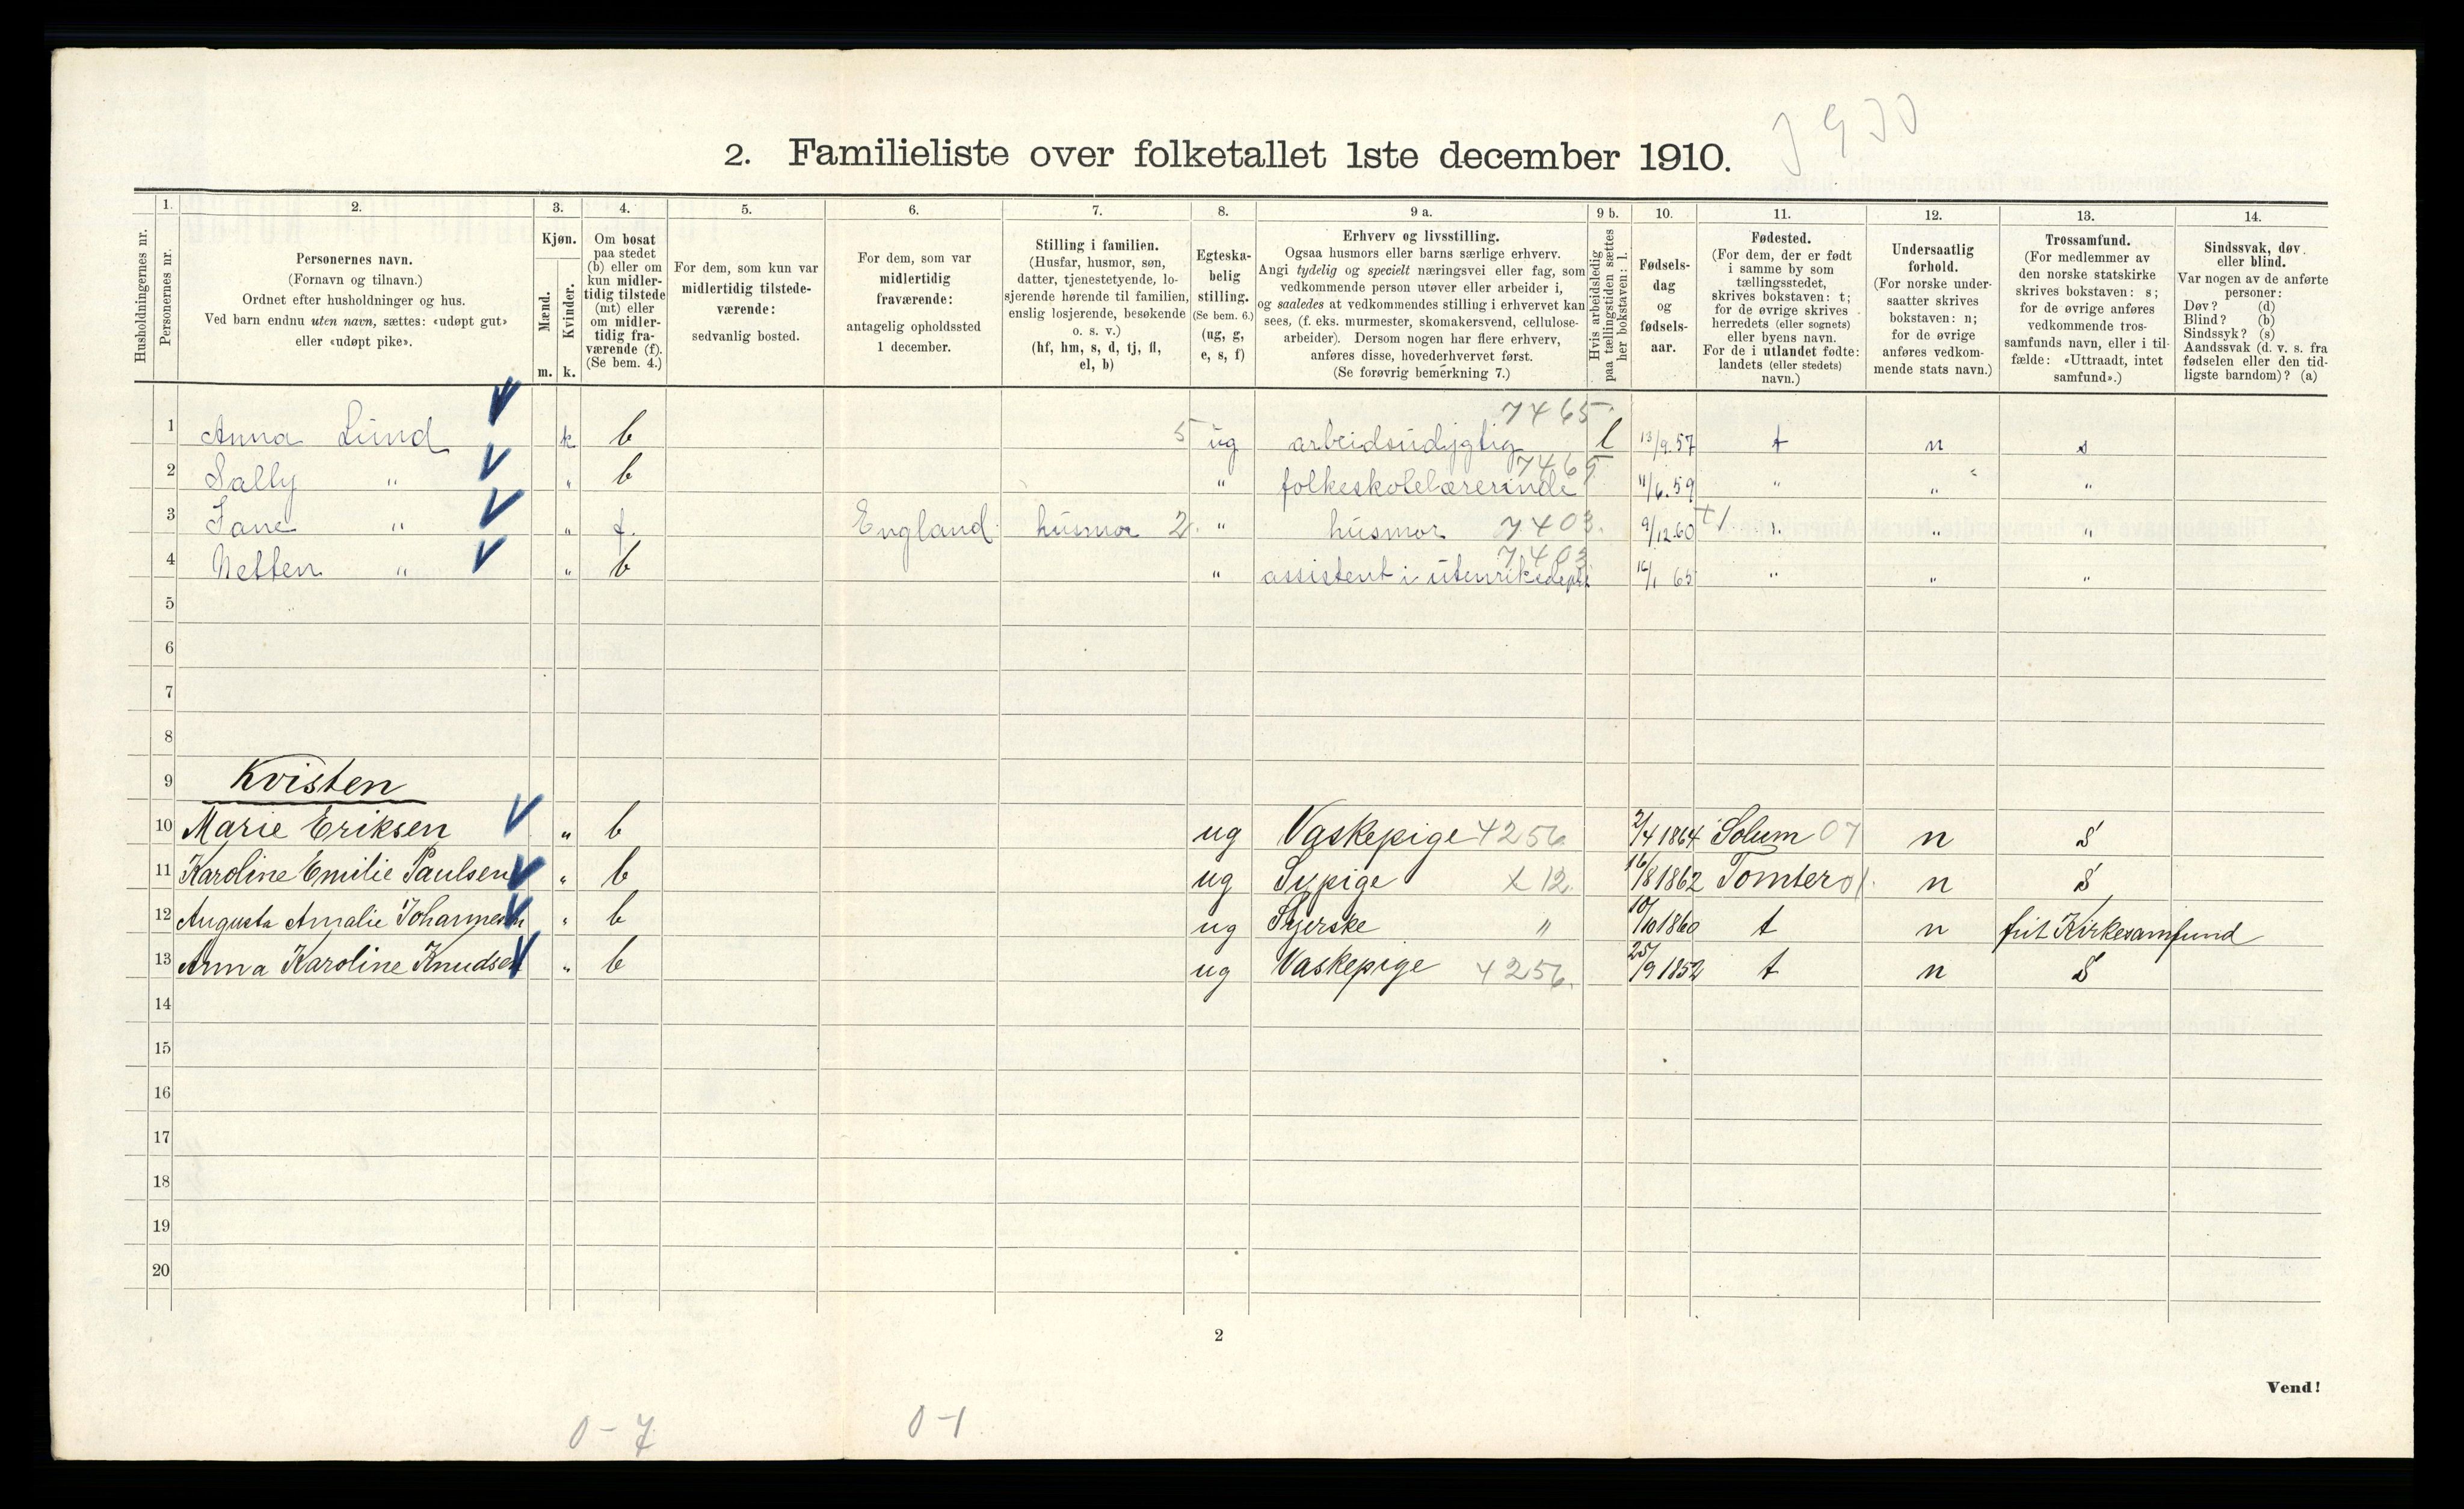 J 9 JJ
2. Familieliste over folketallet 1ste december 1910.
Husholdningernes nr.
1. Personernes nr.
2. Personernes navn.
(Fornavn og tilnavn.)
Ordnet efter husholdninger og hus.
Ved barn endnu uten navn, sættes: «udøpt gut»
eller «udøpt pike».
3. Kjøn.
Mænd. Kvinder.
m. k.
4. Om bosat
paa stedet
(b) eller om
kun midler-
tidig tilstede
(mt) eller
om midler-
tidig fra-
værende (f).
(Se bem. 4.)
5. For dem, som kun var
midlertidig tilstede-
værende:
sedvanlig bosted.
6. For dem, som var
midlertidig
fraværende:
antagelig opholdssted
1 december.
7. Stilling i familien.
(Husfar, husmor, søn,
datter, tjenestetyende, lo-
sjerende hørende til familien,
enslig losjerende, besøkende
o. s. v.)
(hf, hm, s, d, tj, fl,
el, b)
8. Egteska-
belig
stilling.
(Se bem. 6.)
(ug, g,
e, s, f)
9 a. Erhverv og livsstilling.
Ogsaa husmors eller barns særlige erhverv.
Angi tydelig og specielt næringsvei eller fag, som
vedkommende person utøver eller arbeider i,
og saaledes at vedkommendes stilling i erhvervet kan
sees, (f. eks. murmester, skomakersvend, cellulose-
arbeider). Dersom nogen har flere erhverv,
anføres disse, hovederhvervet først.
(Se forøvrig bemerkning 7.)
9 b. Hvis arbeidsledig
paa tællingstiden sættes
her bokstaven: l.
10. Fødsels-
dag
og
fødsels-
aar.
11. Fødested.
(For dem, der er født
i samme by som
tællingsstedet,
skrives bokstaven: t;
for de øvrige skrives
herredets (eller sognets)
eller byens navn.
For de i utlandet fødte:
landets (eller stedets)
navn.)
12. Undersaatlig
forhold.
(For norske under-
saatter skrives
bokstaven: n;
for de øvrige
anføres vedkom-
mende stats navn.)
13. Trossamfund.
(For medlemmer av
den norske statskirke
skrives bokstaven: s;
for de øvrige anføres
vedkommende tros-
samfunds navn, eller i til-
fælde: «Uttraadt, intet
samfund».)
14. Sindssvak, døv
eller blind.
Var nogen av de anførte
personer:
Døv? (d)
Blind? (b)
Sindssyk? (s)
Aandssvak (d. v. s. fra
fødselen eller den tid-
ligste barndom)? (a)
1 Anna Lund k b 5 ug arbeidsudygtig 7465 l 13/9.57 t n s
2 Sally " " b " folkeskolelærerinde 7465 11/6.59 " " "
3 Jane " " f. England husmor 2. " husmor 7403. 9/12.60 " " "
4 Netten " " b " assistent i utenriksdept 7403 16/1 65 " " "
5
6
7
8
9 Kvisten
10 Marie Eriksen " b ug Vaskepige 4256 2/4 1864 Solum 07 n S
11 Karoline Emilie Paulsen " b ug Sypige X 12. 16/8 1862 Tomter 01. n S
12 Augusta Amalie Johannesen " b ug Syerske " 10/10 1860 t n frit Kirkesamfund
13 Anna Karoline Knudsen " b ug Vaskepige 4256. 25/9 1852 t n S
14
15
16
17
18
19
20
2
Vend!
0 - 7 0 - 1